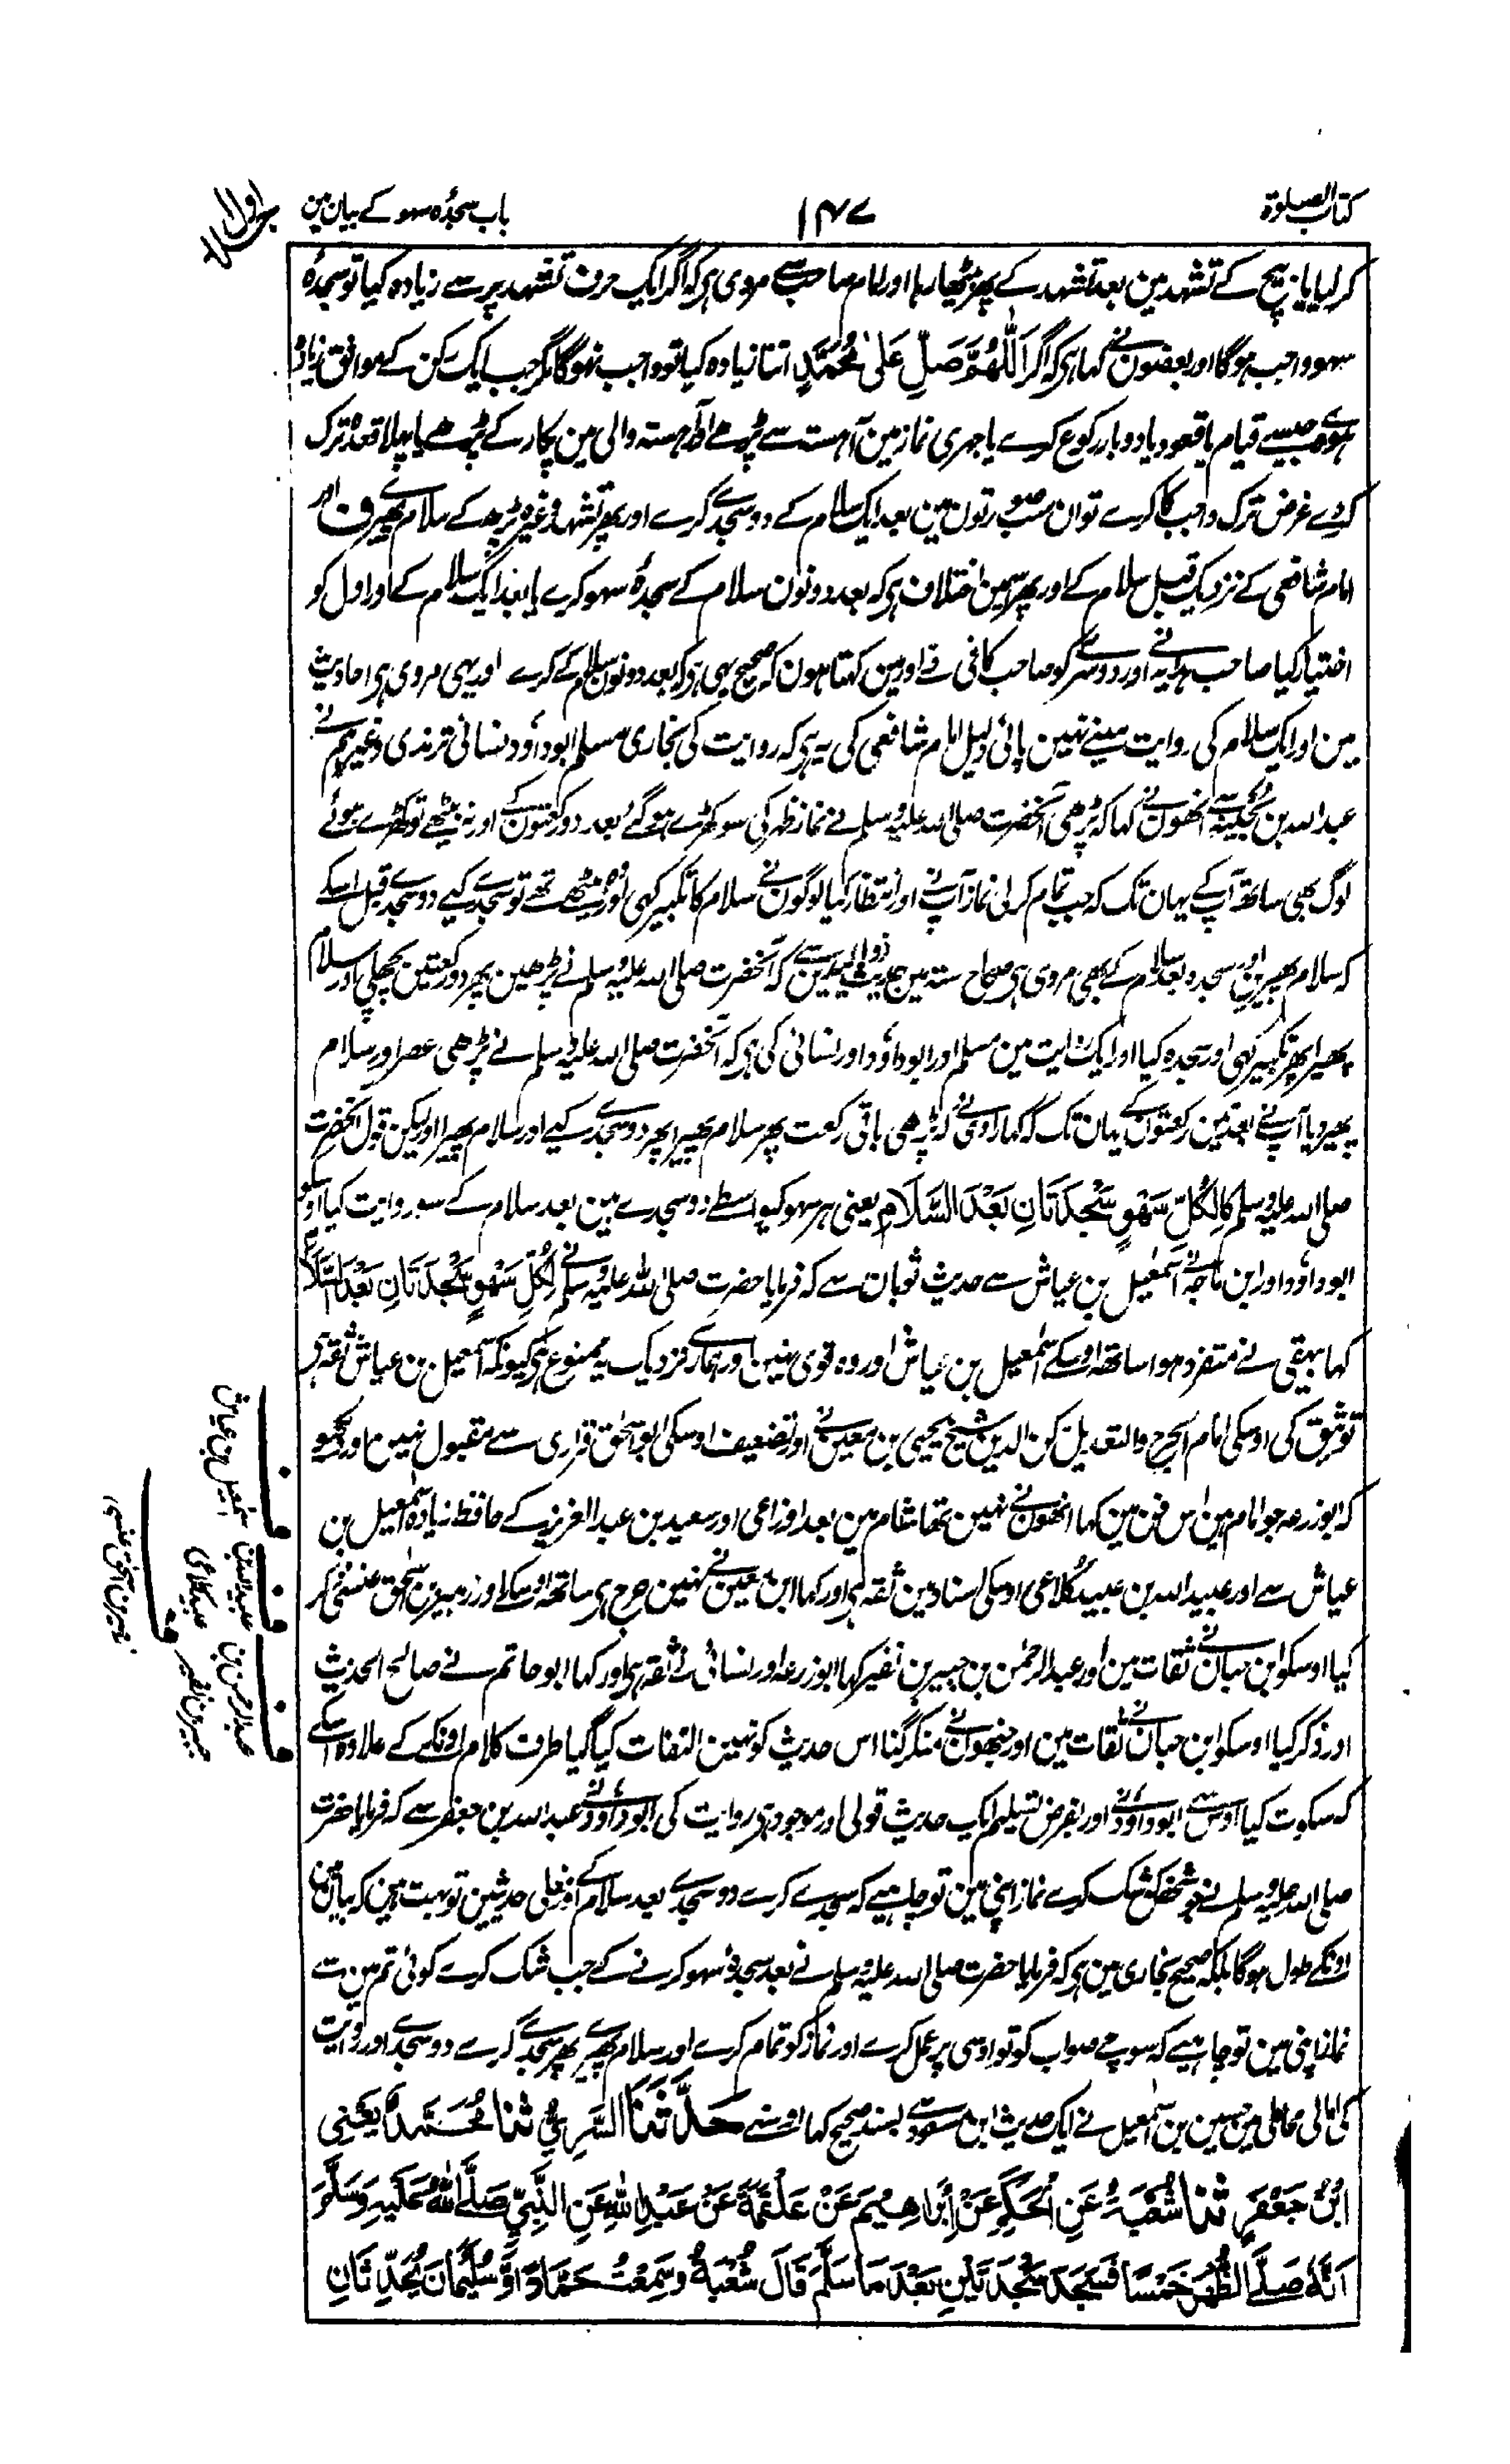 کتاب الصلوۃ
۱۴۷
باب سجدہ سہو کے بیان مین
کر لیا یا بیچ کے تشہد مین بعد تشہد کے پھر بیٹھا رہا اور امام صاحب سے مروی ہی کہ اگر ایک حرف تشہد پر سے زیادہ کیا تو سجدہ
سہو واجب ہوگا اور بعضون نے کہا ہی کہ اگر اَللّٰهُمَّ صَلِّ عَلٰى مُحَمَّدٍ اتنا زیادہ کیا تو واجب نہوگا مگر جب ایک رکن کے موافق زیادہ
ہووے جیسے قیام یا قعود یا دوبار رکوع کرے یا جہری نماز مین آہستہ سے پڑھے اور آہستہ والی مین پکار کے پڑھے یا پہلا قعدہ ترک
کردے غرض ترک واجب کا کرے تو ان سب صورتون مین بعد ایک سلام کے دو سجدے کرے اور پھر تشہد وغیرہ پڑھ کے سلام پھیرے ف اور
امام شافعی کے نزدیک قبل سلام کے اور پھر اسمین اختلاف ہی کہ بعد دونون سلام کے سجدہ سہو کرے یا بعد ایک سلام کے اور اول کو
اختیار کیا صاحب ہدایہ نے اور دوسرے کو صاحب کافی نے اور مین کہتا ہون کہ صحیح یہی ہی کہ بعد دونون سلام کے کرے اور یہی مروی ہی احادیث
مین اور ایک سلام کی روایت مینے نہین پائی دلیل امام شافعی کی یہ ہی کہ روایت کی بخاری مسلم ابوداؤد نسائی ترمذی وغیرہم نے
عبداللہ بن بحینہ سے انھون نے کہا کہ پڑھی آنحضرت صلی اللہ علیہ وسلم نے نماز ظہر کی سو کھڑے ہوگئے بعد دو رکعتون کے اور نہ بیٹھے تو کھڑے ہوئے
لوگ بھی ساتھ آپ کے یہان تک کہ جب تمام کرلی نماز آپ نے اور انتظار کیا لوگون نے سلام کا تکبیر کہی اور بیٹھے تھے تو سجدے کیے دو سجدے قبل اسکے
کہ سلام پھیرین اور سجدہ بعد سلام کے بھی مروی ہی صحاح ستہ مین حدیث ذوالیدین سے کہ آنحضرت صلی اللہ علیہ وسلم نے پڑھین پھر دو رکعتین پچھلی اور سلام
پھیرا پھر تکبیر کہی اور سجدہ کیا اور ایک روایت مین مسلم اور ابوداؤد اور نسائی کی ہی کہ آنحضرت صلی اللہ علیہ وسلم نے پڑھی عصر اور سلام
پھیر دیا آپ نے بعد تین رکعتون کے یہان تک کہ کہا راوی نے کہ پڑھی باقی رکعت پھر سلام پھیرا پھر دو سجدے کیے اور سلام پھیرا اور لیکن قول آنحضرت
صلی اللہ علیہ وسلم کا لِكُلِّ سَهْوٍ سَجْدَتَانِ بَعْدَ السَّلَامِ یعنی ہر سہو کیواسطے دو سجدے ہین بعد سلام کے سو روایت کیا اوسکو
ابوداؤد اور ابن ماجہ نے اسمٰعیل بن عیاش سے حدیث ثوبان سے کہ فرمایا حضرت صلی اللہ علیہ وسلم نے لِكُلِّ سَهْوٍ سَجْدَتَانِ بَعْدَ السَّلَامِ
کہا بیہقی نے متفرد ہوا ساتھ اوسکے اسمٰعیل بن عیاش اور وہ قوی نہین اور ہمارے نزدیک یہ ممنوع ہی کیونکہ اسمٰعیل بن عیاش ثقہ ہی
توثیق کی اوسکی امام الجرح والتعدیل رکن الدین شیخ یحیی بن معین نے اور تضعیف اوسکی ابو اسحٰق فزاری سے مقبول نہین اور دیکھو
کہ ابوزرعہ جو امام ہین اس فن مین کہا انھون نے نہین تھا شام مین بعد اوزاعی اور سعید بن عبدالعزیز کے حافظ زیادہ اسمٰعیل بن
عیاش سے اور عبید اللہ بن عبید کلاعی اوسکی اسناد مین ثقہ ہی اور کہا ابن معین نے نہین حرج ہی ساتھ اوسکے اور زہیر بن اسحٰق عنسی ذکر
کیا اوسکو ابن حبان نے ثقات مین اور عبد الرحمٰن بن جبیر بن نفیر کہا ابوزرعہ اور نسائی نے ثقہ ہی اور کہا ابوحاتم نے صالح الحدیث
اور ذکر کیا اوسکو ابن حبان نے ثقات مین اور جنھون نے منکر گنا اس حدیث کو نہین التفات کیا گیا طرف کلام اونکے کے علاوہ اسکے
کہ سکوت کیا اوس سے ابوداؤد نے اور بفرض تسلیم ایک حدیث قولی اور موجود ہی روایت کی ابوداؤد نے عبداللہ بن جعفر سے کہ فرمایا حضرت
صلی اللہ علیہ وسلم نے جو شخص کہ شک کرے نماز اپنی مین تو چاہیے کہ سجدے کرے دو سجدے بعد سلام کے اور فعلی حدیثین تو بہت ہین کہ بیان مین
اونکے طول ہوگا بلکہ صحیح بخاری مین ہی کہ فرمایا حضرت صلی اللہ علیہ وسلم نے بعد سجدۂ سہو کرنے کے جب شک کرے کوئی تم مین سے
نماز اپنی مین تو چاہیے کہ سوچے صواب کو تو اوسی پر عمل کرے اور نماز کو تمام کرے اور سلام پھیرے پھر سجدے کرے دو سجدے اور روایت
کی امالی محاملی مین حسین بن اسمٰعیل نے ایک حدیث ابن مسعود سے بسند صحیح کہا اونہے حَدَّثَنَا السَّرِيُّ ثنا مُحَمَّدٌ يَعْنِي
ابْنُ جَعْفَرٍ ثنا شُعْبَةُ عَنِ الْحَكَمِ عَنْ إِبْرَاهِيمَ عَنْ عَلْقَمَةَ عَنْ عَبْدِ اللّٰهِ عَنِ النَّبِيِّ صَلَّى اللّٰهُ عَلَيْهِ وَسَلَّمَ
اَنَّهُ صَلَّى الظُّهْرَ خَمْسًا فَسَجَدَ سَجْدَتَيْنِ بَعْدَ مَا سَلَّمَ قَالَ شُعْبَةُ وَسَمِعْتُ حَمَّادًا وَّسُلَيْمَانَ يُحَدِّثَانِ
ف اسمٰعیل بن عیاش
ف عبیداللہ بن عبید کلاعی
ف عبدالرحمن بن جبیر بن نفیر
ف زہیر بن اسحٰق عنسی